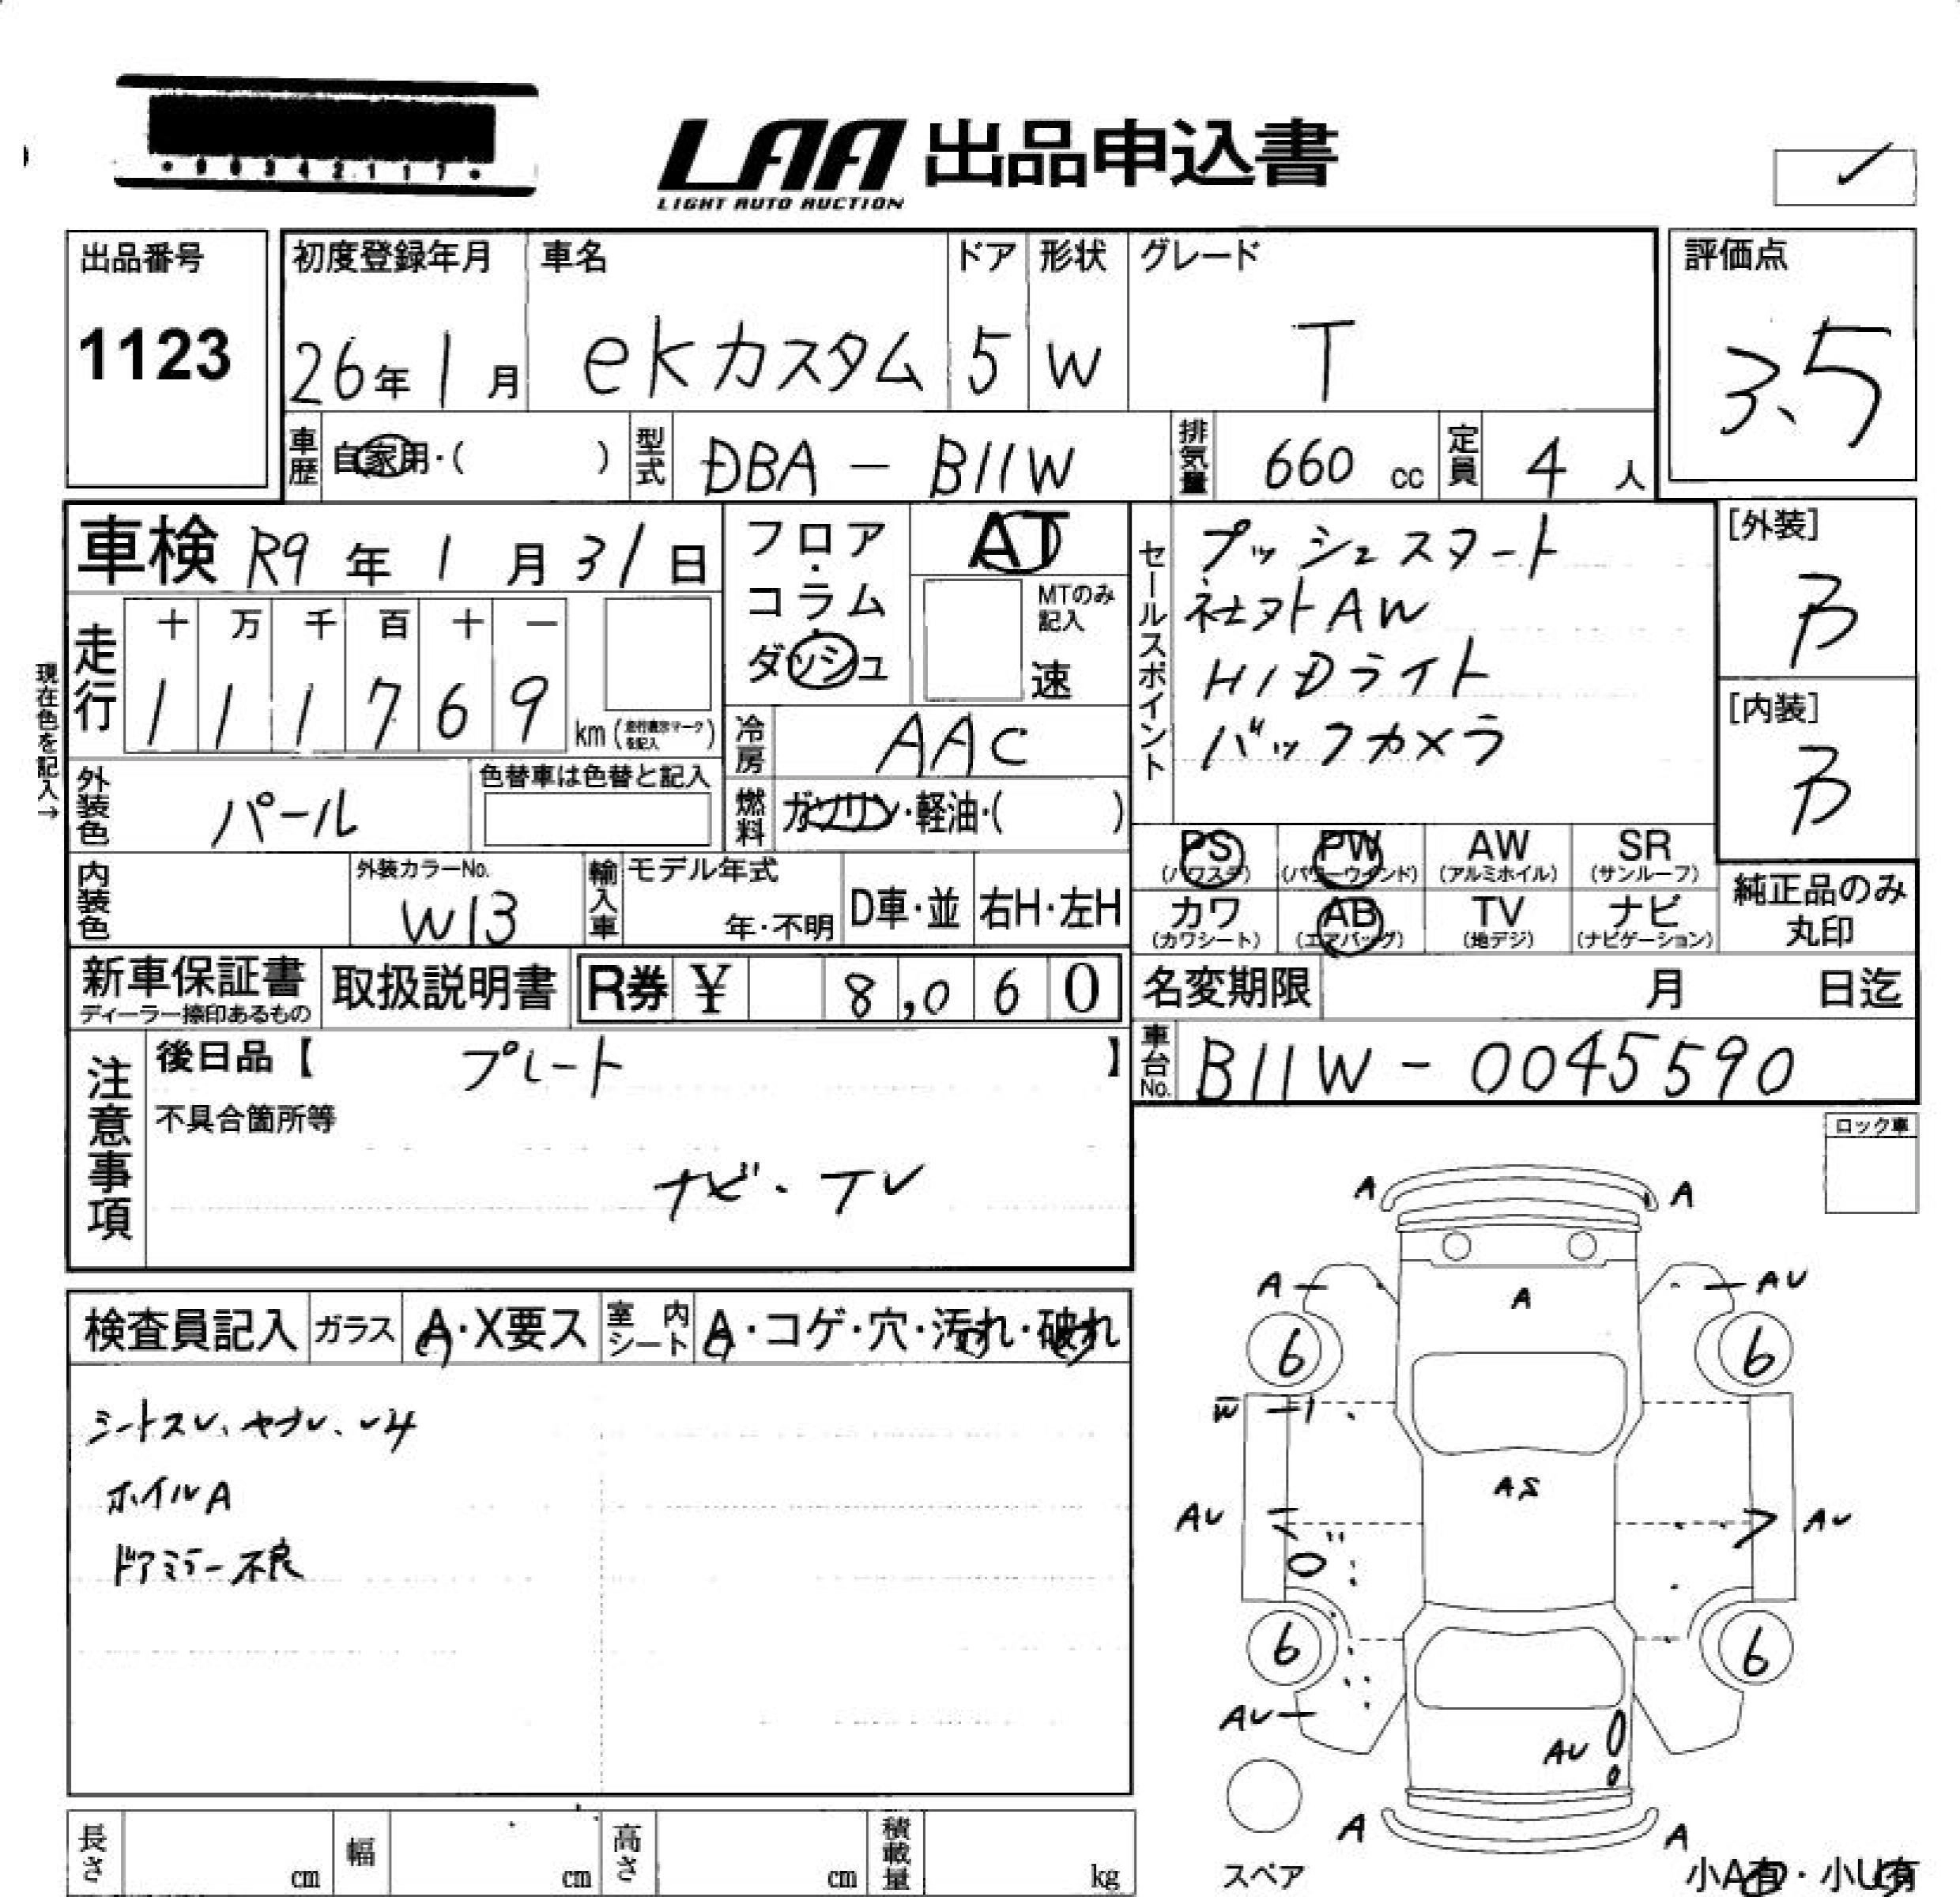 ・00342117・
LAA 出品申込書
LIGHT AUTO AUCTION
出品番号 初度登録年月 車名 ドア 形状 グレード 評価点
1123 26年 1月 ekカスタム 5 W T 3.5
車歴 自家用・( ) 型式 DBA - B11W 排気量 660 cc 定員 4 人
車検 R9年 1月 31日
フロア・コラム・ダッシュ AT
MTのみ記入 速
セールスポイント
プッシュスタート
社外AW
HIDライト
バックカメラ
[外装]
B
[内装]
B
現在色を記入→
走行 十 万 千 百 十 一
1 1 1 7 6 9 km (走行表示マークを記入)
冷房 AAC
燃料 ガソリン・軽油・( )
外装色 パール 色替車は色替と記入
内装色 外装カラーNo. W13
輸入車 モデル年式 年・不明 D車・並 右H・左H
PS (パワステ) PW (パワーウインド) AW (アルミホイル) SR (サンルーフ)
カワ (カワシート) AB (エアバッグ) TV (地デジ) ナビ (ナビゲーション)
純正品のみ丸印
新車保証書 ディーラー捺印あるもの 取扱説明書 R券 ¥ 8,060
名変期限 月 日迄
車台No. B11W - 0045590
注意事項
後日品【 プレート 】
不具合箇所等
ナビ・TV
ロック車
検査員記入 ガラス A・X要ス 室内シート A・コゲ・穴・汚れ・破れ
シートスレ、ヤブレ、
ホイルA
ドアミラー不良
A A
A A AU
6 6
W
AS
AU AU
6 6
AU
AU
A A
スペア
小A有・小U有
長さ cm 幅 cm 高さ cm 積載量 kg